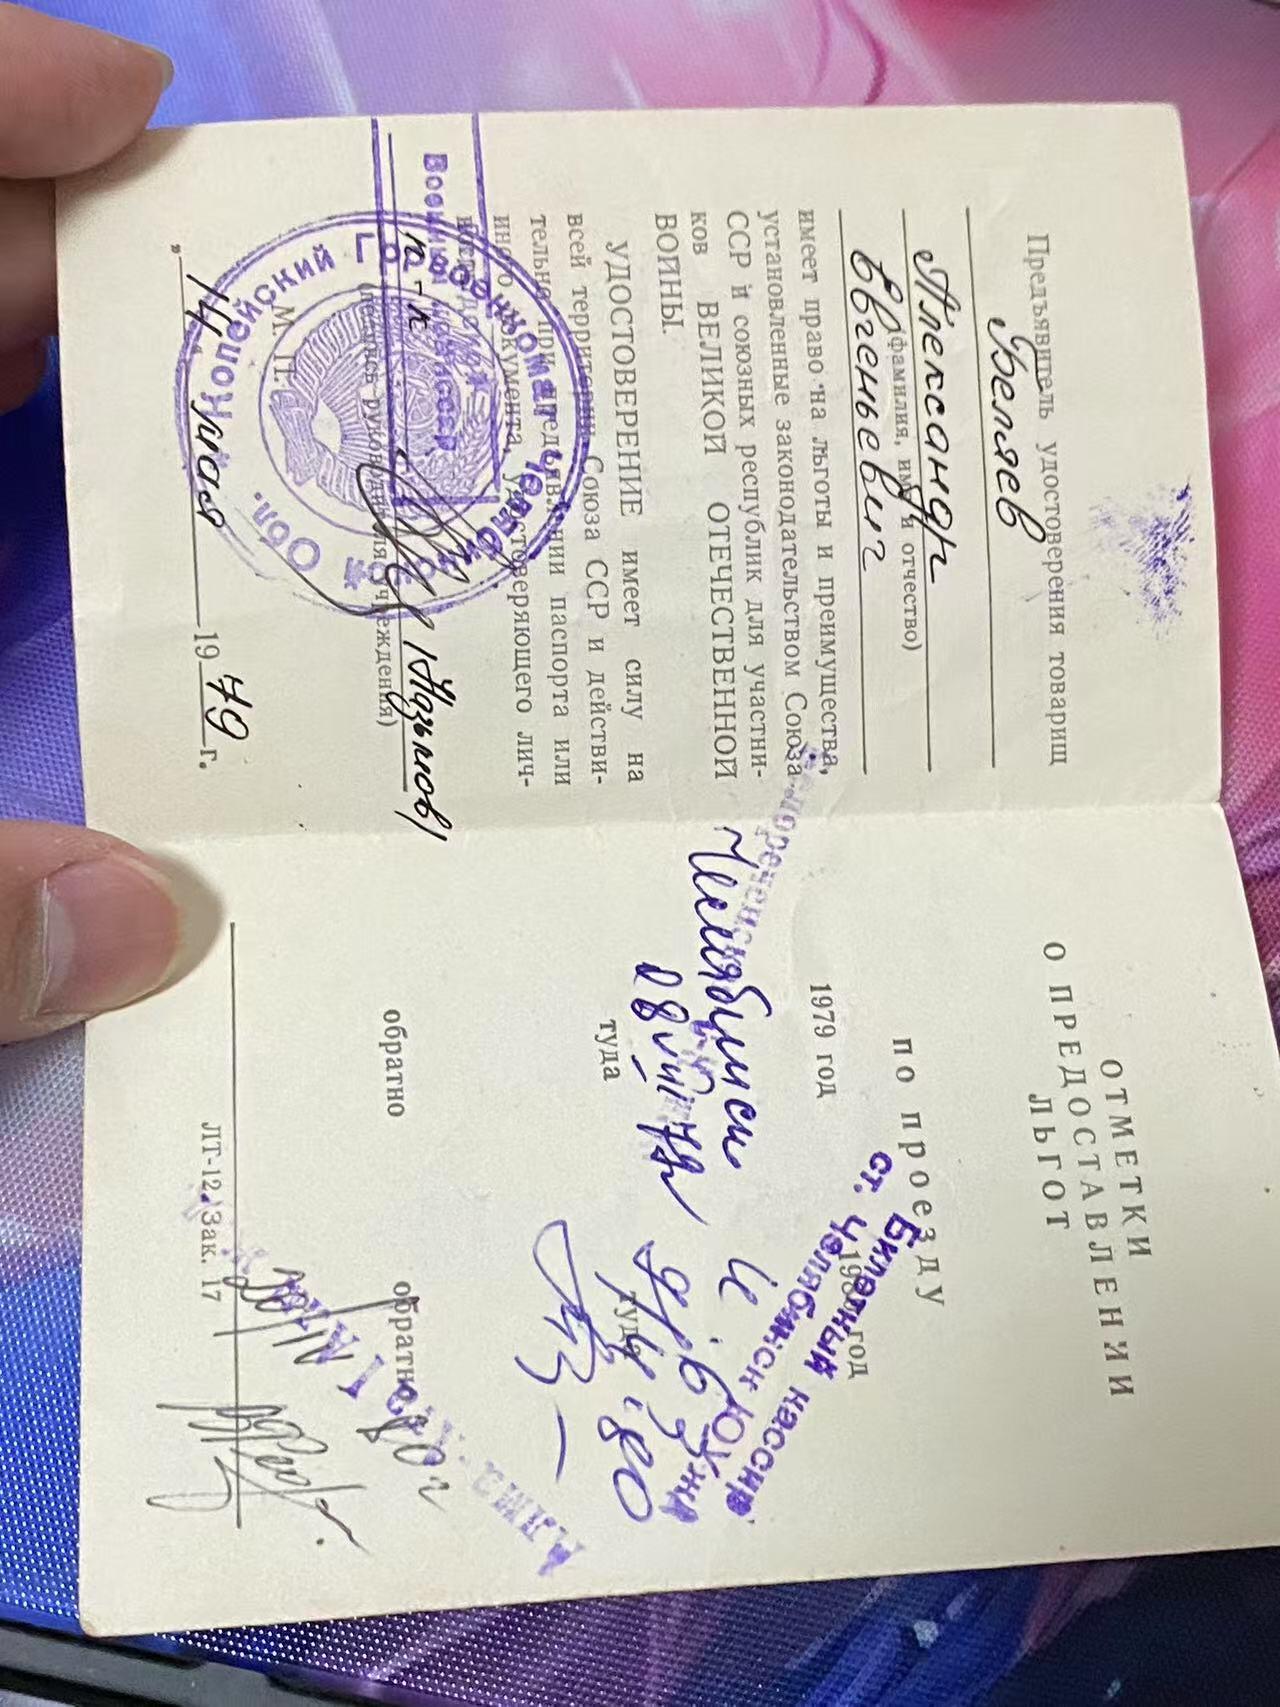 Предъявитель удостоверения товарищ
Беляев
Александр
(фамилия, имя и отчество)
Евгеньевич
имеет право на льготы и преимущества,
установленные законодательством Союза
ССР и союзных республик для участни-
ков ВЕЛИКОЙ ОТЕЧЕСТВЕННОЙ
ВОЙНЫ.
УДОСТОВЕРЕНИЕ имеет силу на
всей территории Союза ССР и действи-
тельно при предъявлении паспорта или
иного документа, удостоверяющего лич-
ность.
Военный комиссар
п-к
(подпись руководителя учреждения)
М. П.
Копейский Горвоенкомат
Обл.
„14“ мая 1979 г.
ОТМЕТКИ
О ПРЕДОСТАВЛЕНИИ
ЛЬГОТ
по проезду
1979 год
1980 год
Билетный кассир
ст. Челябинск ЮУжд
туда
туда
обратно
обратно
ЛТ-12. Зак. 17